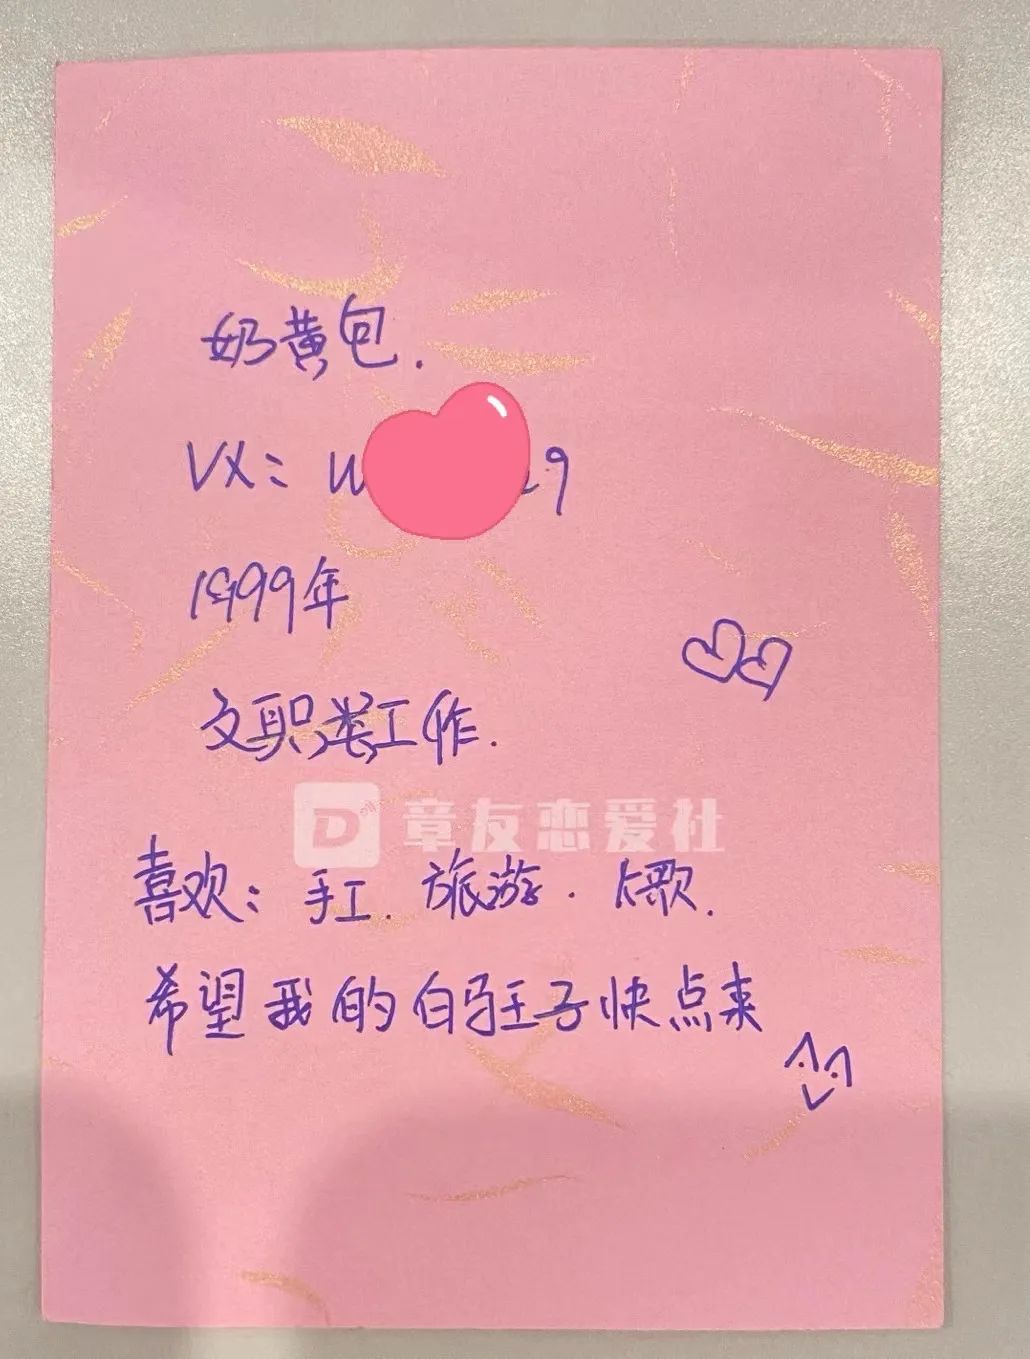 奶黄包.
VX: W 29
1999年
文职类工作.
D 章友恋爱社
喜欢: 手工. 旅游. K歌.
希望我的白马王子快点来